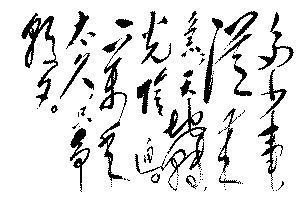 多少事
從来
急天地轉
光陰迫。
一萬年
太久只争
朝夕。